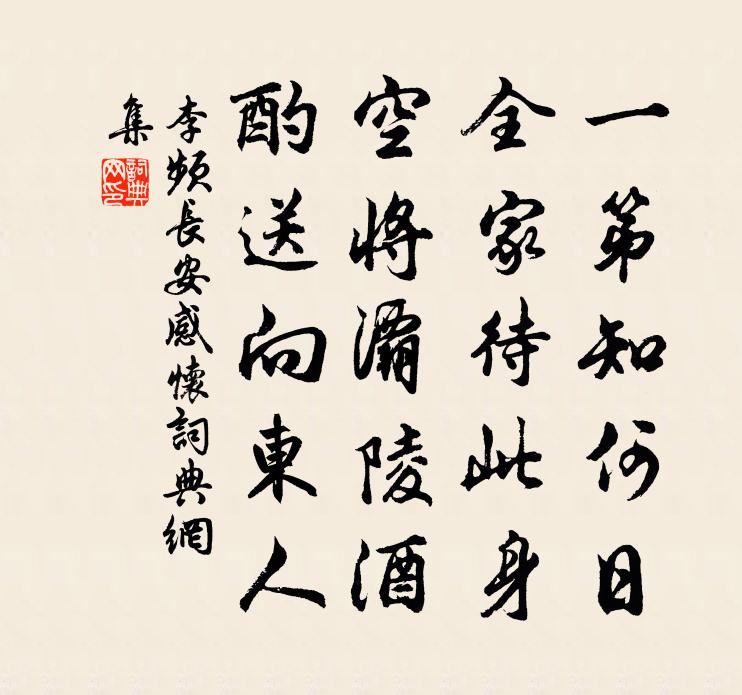 一第知何日
全家待此身
空將灞陵酒
酌送向東人
李頻長安感懷詞典網
集
詞典
網印